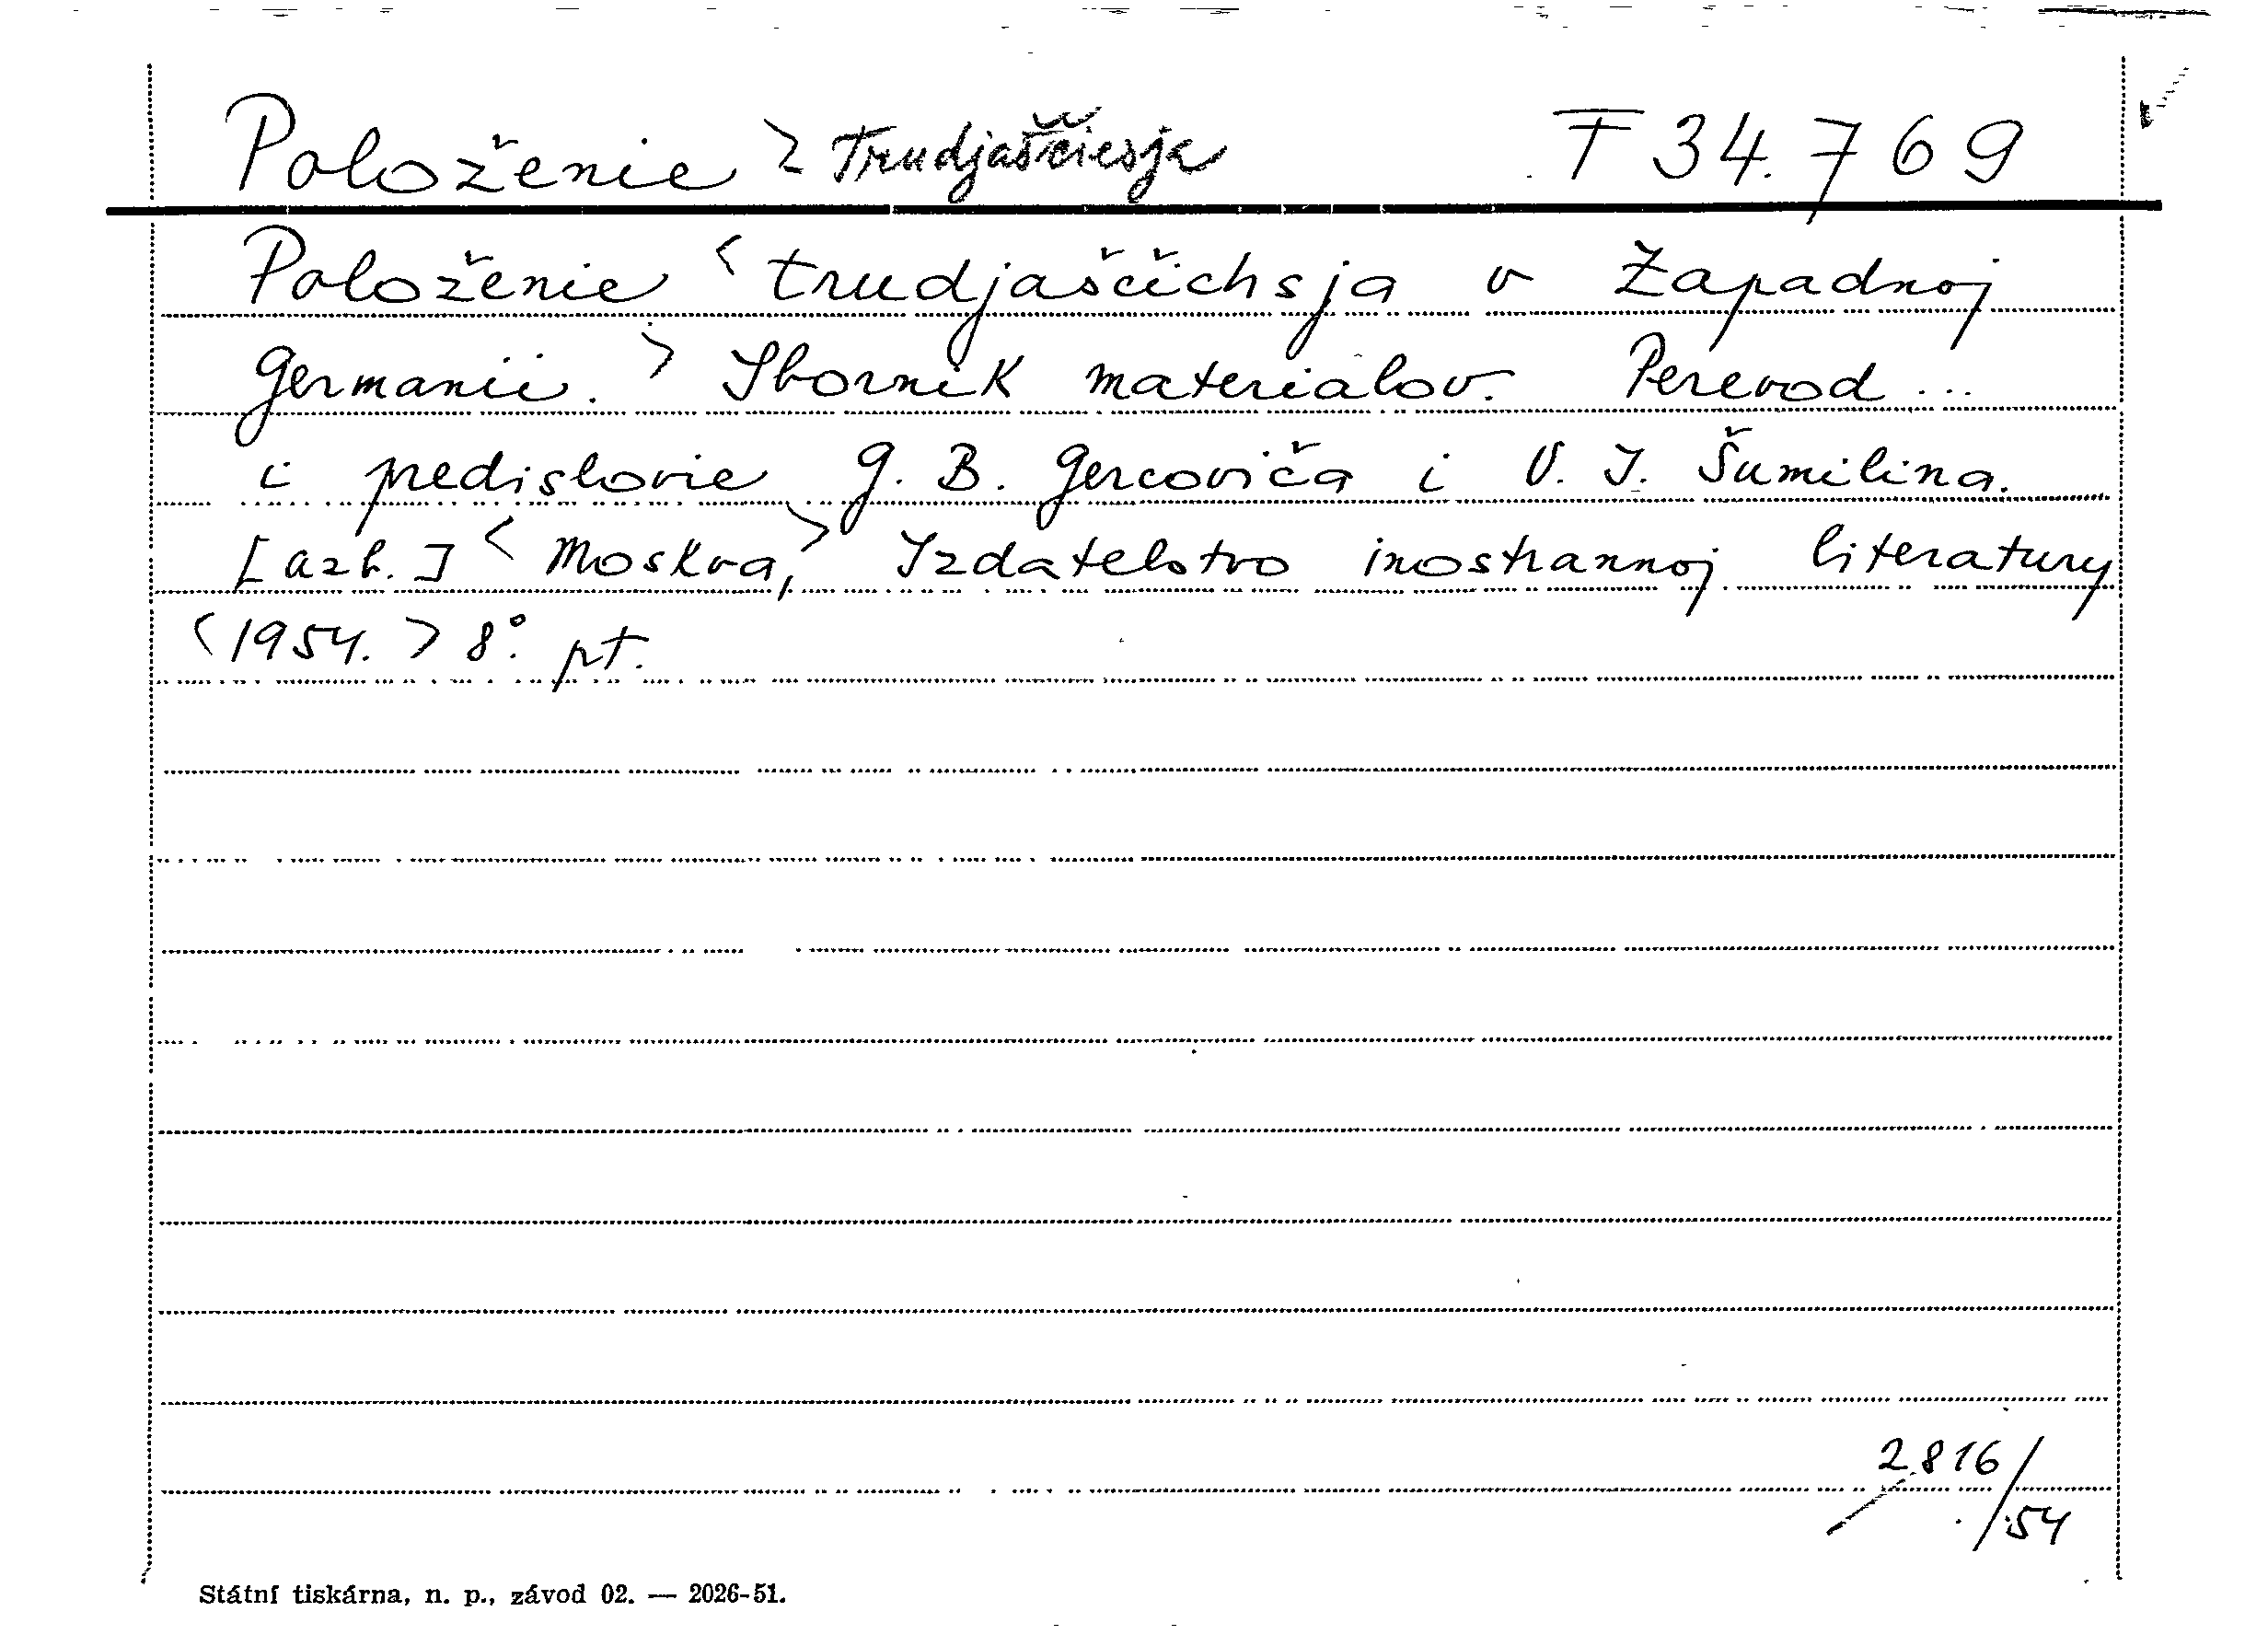 Položenie > Trudjaščiesja T 34.769
Položenie < trudjaščichsja v Zapadnoj
Germanii. > Sbornik materialov. Perevod ...
i predislovie G. B. Gercoviča i V. I. Šumilina.
[azb.] < Moskva, > Izdatelstvo inostrannoj literatury
< 1954. > 8°. pt.
2816/
54
Státní tiskárna, n. p., závod 02. — 2026-51.